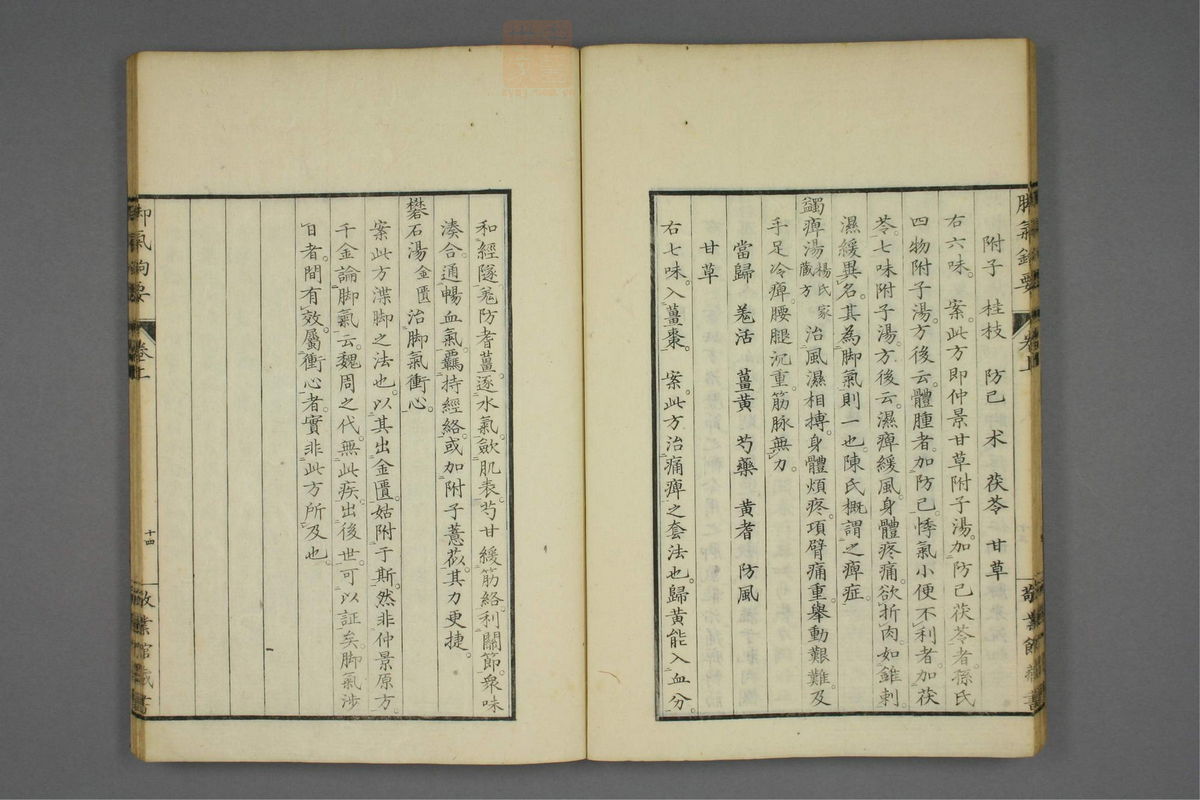 附子　桂枝　防已　朮　茯苓　甘草
右六味。　案。此方即仲景甘草附子湯。加防已茯苓者。孫氏
四物附子湯。方後云。體腫者。加防已。悸氣小便不利者。加茯
苓。七味附子湯。方後云。濕痺緩風。身體疼痛。欲折肉如錐刺。
濕緩異名。其為脚氣則一也。陳氏概謂之痺症。
蠲痺湯 楊氏家藏方　治風濕相搏。身體煩疼。項臂痛重。舉動艱難。及
手足冷痺。腰腿沉重。筋脉無力。
當歸　羗活　薑黄　芍藥　黄耆　防風
甘草
右七味。入薑棗。　案。此方治痛痺之套法也。歸黄能入血分。
和經隧。羗防耆薑。逐水氣。歛肌表。芍甘緩筋絡。利關節。衆味
湊合。通暢血氣。覊持經絡。或加附子薏苡。其力更捷。
礬石湯 金匱　治脚氣衝心。
案此方渫脚之法也。以其出金匱。姑附于斯。然非仲景原方。
千金論脚氣云。魏周之代。無此疾。出後世。可以証矣。脚氣渉
日者。間有效。屬衝心者。實非此方所及也。
卷上
十四